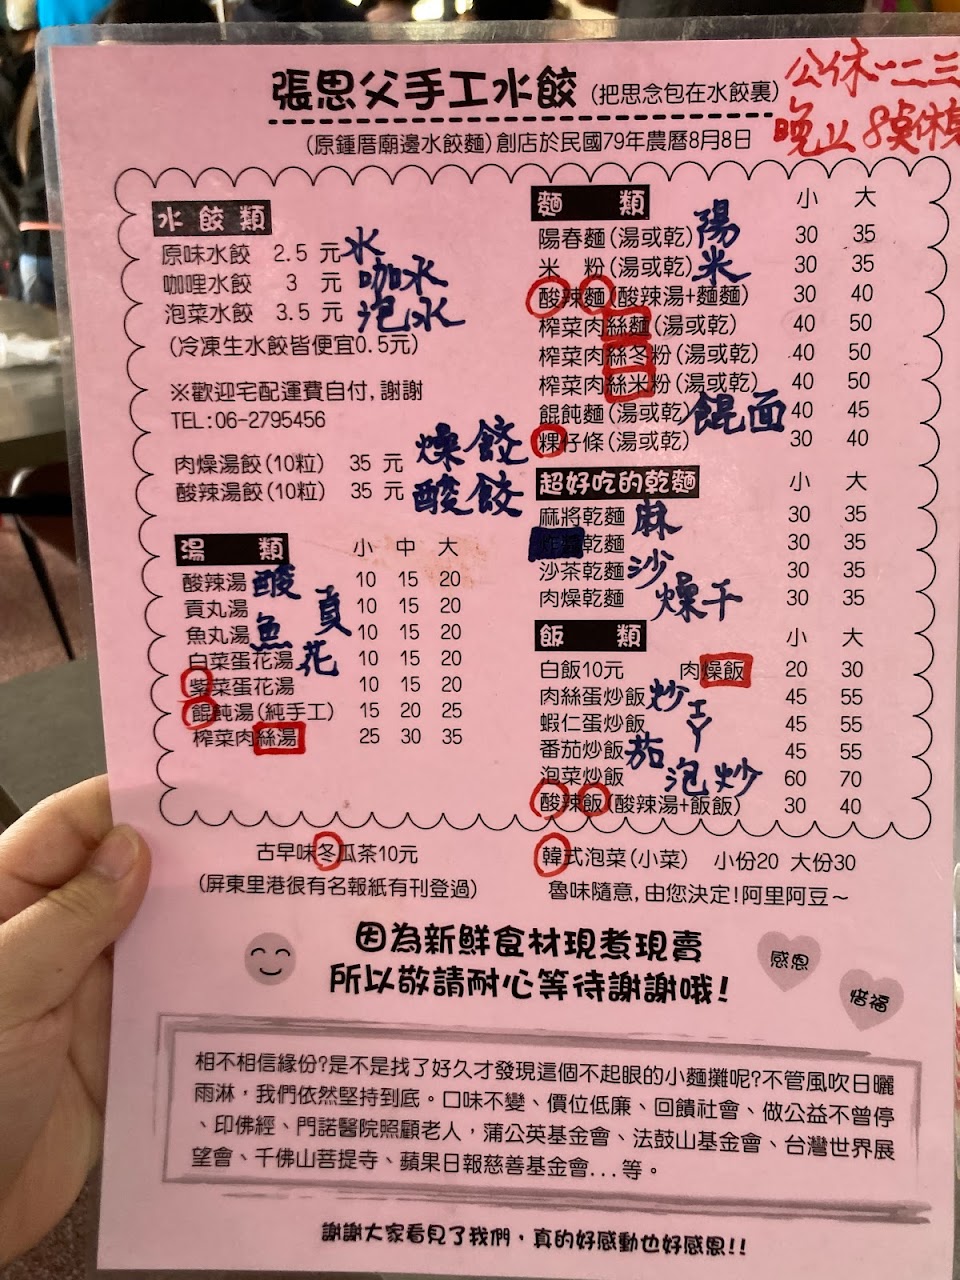 張思父手工水餃(把思念包在水餃裏)
公休一二三
晚上8桌休息
(原鍾厝廟邊水餃麵)創店於民國79年農曆8月8日
水餃類
原味水餃 2.5 元 水
咖哩水餃 3 元 咖水
泡菜水餃 3.5 元 泡水
(冷凍生水餃皆便宜0.5元)
※歡迎宅配運費自付,謝謝
TEL:06-2795456
肉燥湯餃(10粒) 35 元 燥餃
酸辣湯餃(10粒) 35 元 酸餃
湯類 小 中 大
酸辣湯 酸 10 15 20
貢丸湯 貢 10 15 20
魚丸湯 魚 10 15 20
白菜蛋花湯 花 10 15 20
紫菜蛋花湯 10 15 20
餛飩湯(純手工) 15 20 25
榨菜肉絲湯 25 30 35
麵類 小 大
陽春麵(湯或乾) 陽 30 35
米粉(湯或乾) 米 30 35
酸辣麵(酸辣湯+麵麵) 30 40
榨菜肉絲麵(湯或乾) 40 50
榨菜肉絲冬粉(湯或乾) 40 50
榨菜肉絲米粉(湯或乾) 40 50
餛飩麵(湯或乾) 餛面 40 45
粿仔條(湯或乾) 30 40
超好吃的乾麵 小 大
麻將乾麵 麻 30 35
炸醬乾麵 30 35
沙茶乾麵 沙 30 35
肉燥乾麵 燥干 30 35
飯類 小 大
白飯10元 肉燥飯 20 30
肉絲蛋炒飯 炒 45 55
蝦仁蛋炒飯 45 55
番茄炒飯 茄 45 55
泡菜炒飯 泡炒 60 70
酸辣飯(酸辣湯+飯飯) 30 40
古早味冬瓜茶10元
(屏東里港很有名報紙有刊登過)
韓式泡菜(小菜) 小份20 大份30
魯味隨意,由您決定!阿里阿豆~
因為新鮮食材現煮現賣
所以敬請耐心等待謝謝哦!
感恩
惜福
相不相信緣份?是不是找了好久才發現這個不起眼的小麵攤呢?不管風吹日曬
雨淋,我們依然堅持到底。口味不變、價位低廉、回饋社會、做公益不曾停
、印佛經、門諾醫院照顧老人,蒲公英基金會、法鼓山基金會、台灣世界展
望會、千佛山菩提寺、蘋果日報慈善基金會...等。
謝謝大家看見了我們,真的好感動也好感恩!!